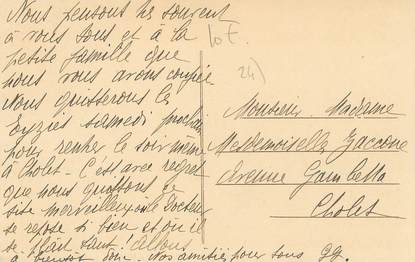 Nous pensons très souvent
à vous tous et à la
petite famille que
nous vous avons confiée
Nous quitterons les
Eyzies samedi prochain
pour rentrer le soir même
à Cholet. C'est avec regret
que nous quittons ce
site merveilleux où le Docteur
se repose si bien et où il
se plaît tant.
à bientôt donc. Nos amitiés pour tous
10 F.
24)
Monsieur Madame
Mesdemoiselles Jaccone
Avenue Gambetta
Cholet